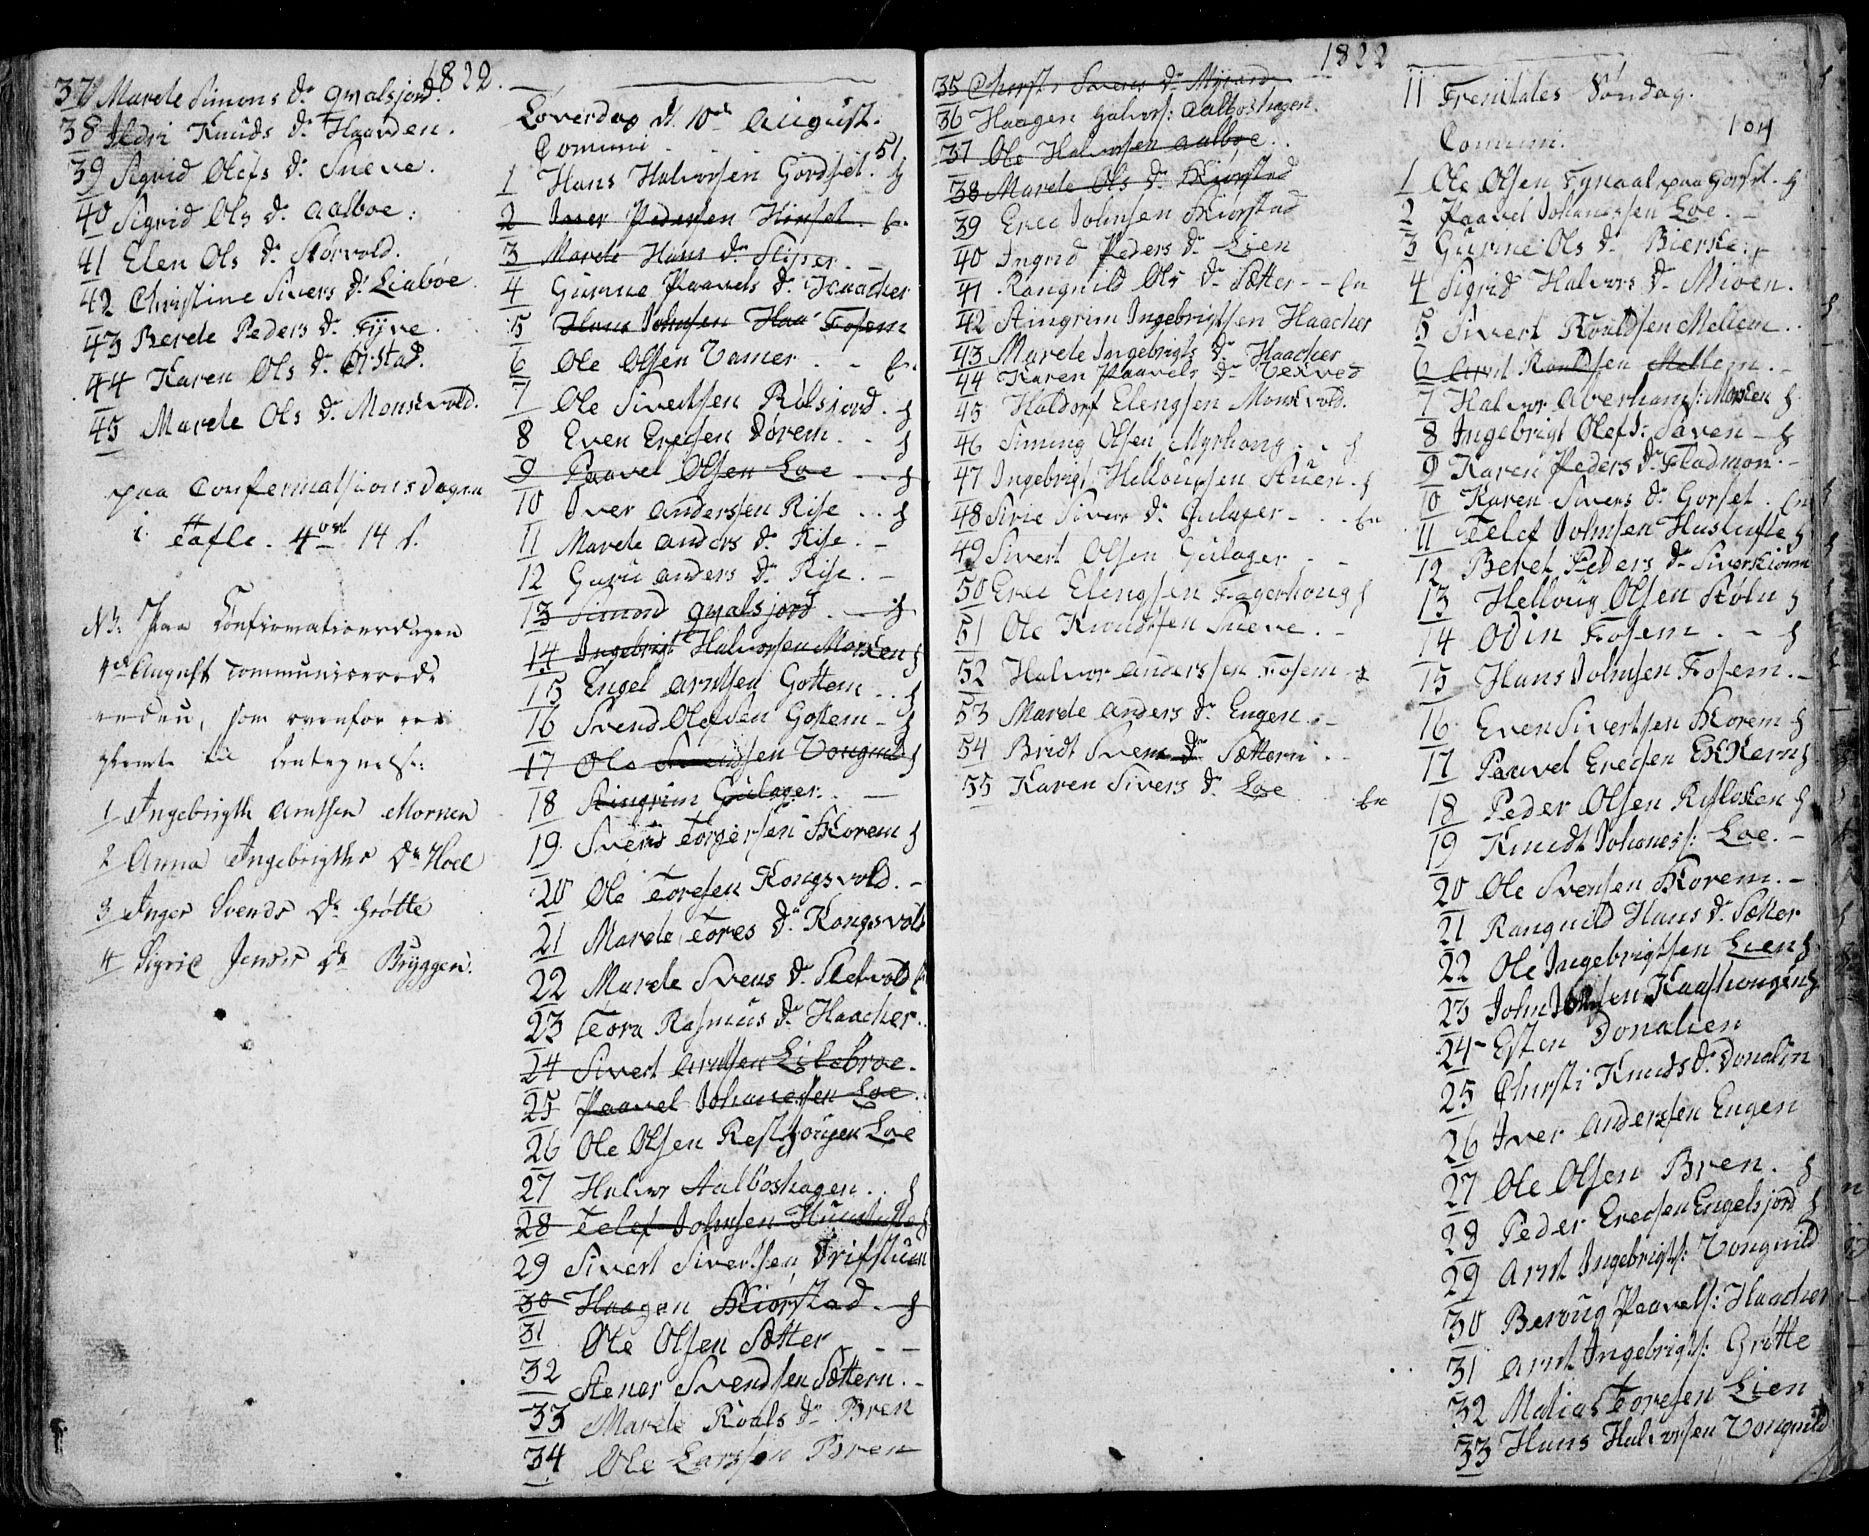 1822.
37 Marete Simons Dr. Qvalsjord.
38 Ildri Knuds Dr. Haarden.
39 Sigrid Olefs Dr. Sneve.
40 Sigrid Ols Dr. Aalboe.
41 Elen Ols Dr. Storvold.
42 Christine Sivers Dr. Liabøe.
43 Berete Peders Dr. Fyve.
44 Karen Ols Dr. Ørstad.
45 Marete Ols Dr. Monsevold.
paa Confermatsions Dagen
i Tafle. 4 ort 14 s.
NB. Paa Confirmationsdagen
4de August communicerede
endnu, som ovenfor er
glemt at antegnes:
1 Ingebrigth Arntsen Mornen
2 Anna Ingebrigths Dr. Hoel
3 Inger Svends Dr. Grøtte
4 Sigrid Jensis Dr. Bryggen.
Løverdag d. 10de August.
Comuni . . . 51
1 Hans Halvorsen Gordset. h
2 Iver Pedersen Hinset. En.
3 Marete Hans Dr. Sliper.
4 Gurine Paavels Dr. Haacher
5 Hans Johnsen Haa Fosem
6 Ole Olsen Vamer. - En.
7 Ole Sivertsen Rølsjord. h
8 Even Ericsen Dørem. - h
9 Paavel Olsen Loe - h
10 Iver Anderssen Rise . . h
11 Marete Anders Dr. Rise. -
12 Guru Anders Dr. Rise. -
13 Simond Qvalsjord. - h
14 Ingebrigt Halvorsen Morken h
15 Engel Arntsen Gottem . . h
16 Svend Olefsen Gostem - h
17 Ole Svendsen Vongnild h
18 Stingrim Gulager. -
19 Svend Torgersen Skorem h
20 Ole Toresen Kongsvold. -
21 Marete Tores Dr. Kongsvold
22 Marete Svens Dr. Sletvold
23 Tora Rasmus Dr. Haacher.
24 Sivert Arntsen Lilebroe.
25 Paavel Johanessen Loe.
26 Ole Olsen Loe
27 Halvor Aalboshagen. . h
28 Telef Johnsen Huslufte h
29 Sivert Sivertsen Drifstuen
30 Haagen Skiorstad. - h
31 Ole Olsen Sætter - -
32 Stener Svendsen Sættern. -
33 Marete Roals Dr. Bren
34 Ole Larssen Bren
1822
35 Chirsti Sivers Dr.
36 Haagen Halvors: Aalboshagen.
37 Ole Halvorsen Aalboe.
38 Marete Ols Dr. Skiorstad
39 Eric Johnsen Skiorstad
40 Ingrid Peders Dr. Lien
41 Rangnild Ols Dr. Sætter - - En
42 Stingrim Ingebrigtsen Haacher
43 Marete Ingebrigts Dr. Haacher
44 Karen Paavels Dr. Vexved
45 Haldorf Elengsen Monsevold.
46 Siming Olsen Myrhoug. . h
47 Ingebrigt Hellougsen Stuen. h
48 Sirie Sivers Dr. Gulager - . - En
49 Sivert Olsen Gulager - -
50 Eric Elengsen Fagerhoug h
51 Ole Knudsen Sneve. -
52 Halvor Anderssen Fosem
53 Marete Anders Dr. Engen. -
54 Bridt Svens Dr. Sættern. -
55 Karen Sivers Dr. Loe En
11 Trenitates Søndag.
104
Comuni.
1 Ole Olsen Tynaal paa Gorset. h
2 Paavel Johanessen Loe. -
3 Gurine Ols Dr. Bierke.
4 Sigrid Halvors Dr. Mioen.
5 Sivert Roaldsen Mellem. .
6 Arnt Roaldsen Mellem. -
7 Halvor Aberhams: Morken h
8 Ingebrigt Olefs: Saven - h
9 Karen Peders Dr. Fladmon. -
10 Karen Sivers Dr. Gorset. En
11 Telef Johnsen Huslufte h
12 Beret Peders Dr.
13 Helloug Olsen Støln h
14 Odin Fosem. - h
15 Hans Johnsen Fosem. -
16 Even Sivertsen Skorem h
17 Paavel Ericsen h
18 Peder Olsen h
19 Knudt Johaness: Loe. -
20 Ole Svensen Skorem. -
21 Rangnild Hans Dr. Sætter
22 Ole Ingebrigtsen Lien h
23 John
24 Esten Donalien
25 Chirsti Knuds Dr. Donalin
26 Iver Anderssen Engen
27 Ole Olsen Bren. h
28 Peder Ericsen Engelsjord h
29 Arnt Ingebrigts: Vongnild
30 Beroug Paavels: Haacher
31 Arnt Ingebrigts: Grøtte
32 Malias Toresen Lien
33 Hans Halvorsen Vongnild